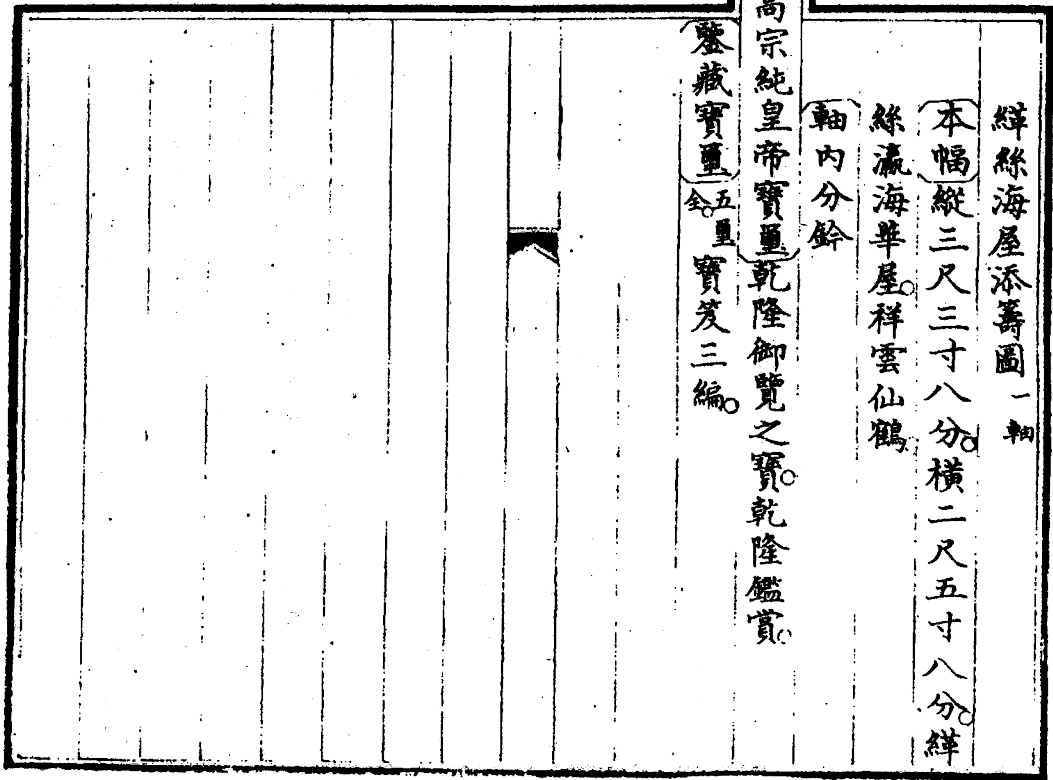 緙絲海屋添籌圖一軸
本幅縱三尺三寸八分橫二尺五寸八分緙
絲瀛海華屋祥雲仙鶴
軸內分鈐
高宗純皇帝寶璽乾隆御覽之寶乾隆鑑賞
鑒藏寶璽五璽全寶笈三編